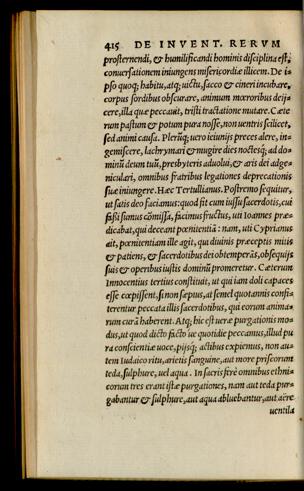 415 DE INVENT. RERVM
prosternendi, & humilificandi hominis disciplina est,
conuersationem iniungens misericordiæ illicem. De i-
pso quoq; habitu, atq; uictu, sacco & cineri incubare,
corpus sordibus obscurare, animum mœroribus deij-
cere, illa quæ peccauit, tristi tractatione mutare. Cæte
rum pastum & potum pura nosse, non uentris scilicet,
sed animi causa. Plerũq; uero ieiunijs preces alere, in-
gemiscere, lachrymari & mugire dies noctesq; ad do-
minũ deum tuũ, presbyteris aduolui, & aris dei adge-
niculari, omnibus fratribus legationes deprecationis
suæ iniungere. Hæc Tertullianus. Postremo sequitur,
ut satis deo faciamus: quod fit cum iussu sacerdotis, cui
fassi sumus cõmissa, facimus fructus, uti Ioannes præ-
dicabat, qui deceant pœnitentiã: nam, uti Cyprianus
ait, pœnitentiam ille agit, qui diuinis præceptis mitis
& patiens, & sacerdotibus dei obtemperãs, obsequijs
suis & operibus iustis dominũ promeretur. Cæterum
Innocentius tertius constituit, ut qui iam doli capaces
esse cœpissent, si non sæpius, at semel quotannis confi-
terentur peccata illis sacerdotibus, qui eorum anima-
rum curã haberent. Atq; hic est ueræ purgationis mo-
dus, ut quod dicto facto ue quotidie peccamus, illud pu
ra conscientiæ uoce, pijsq; actibus expiemus, non au-
tem Iudaico ritu, arietis sanguine, aut more priscorum
teda, sulphure, uel aqua. In sacris ferè omnibus ethni-
corum tres erant istæ purgationes, nam aut teda pur-
gabantur & sulphure, aut aqua abluebantur, aut aëre
uentila